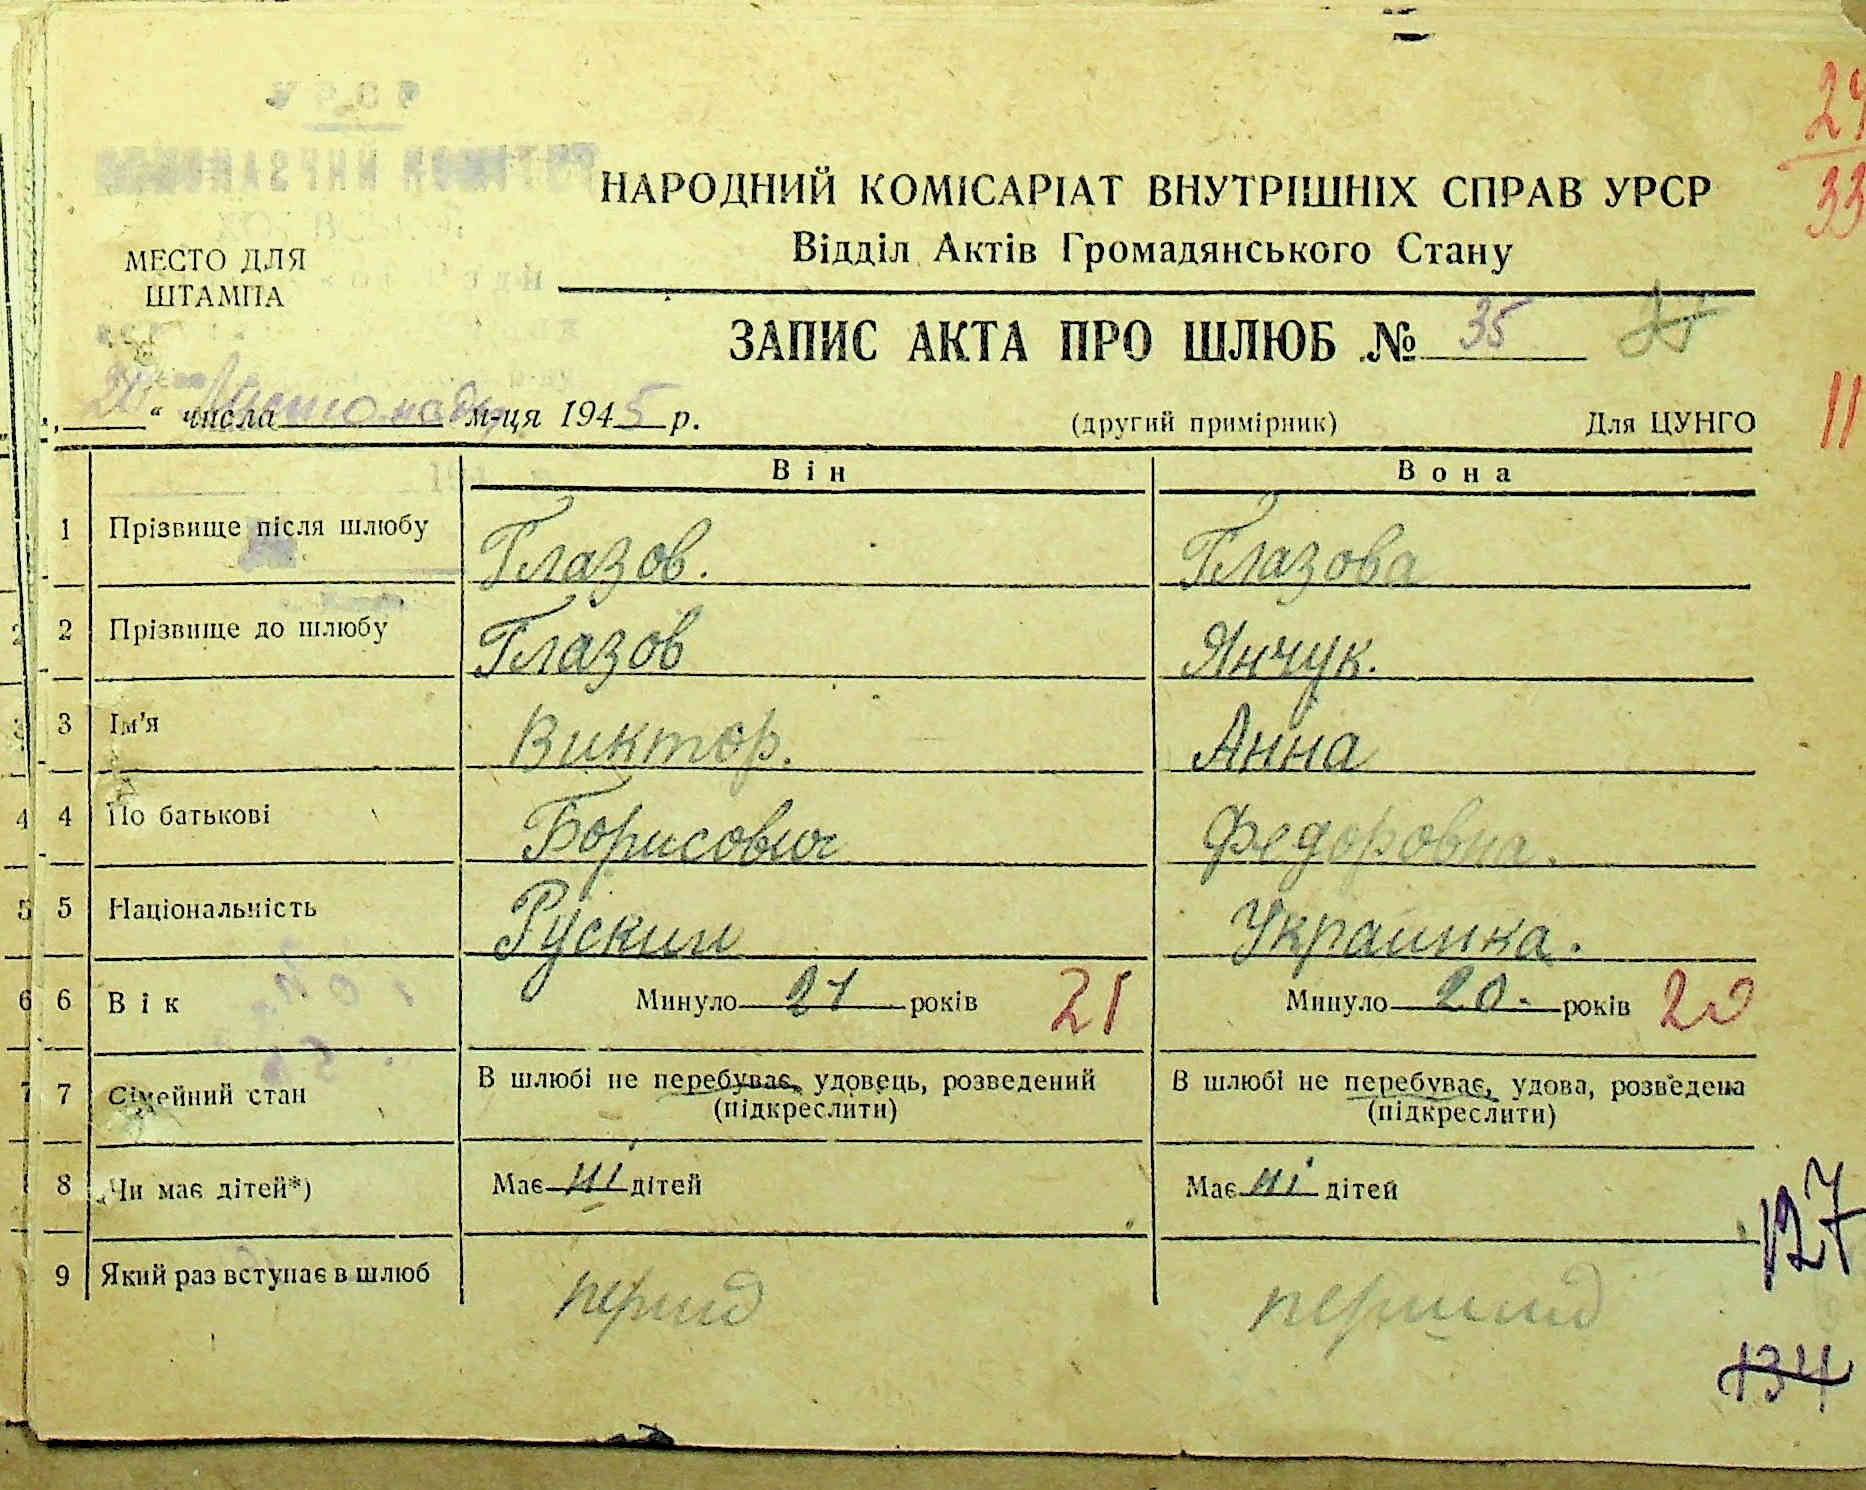 29
33
НАРОДНИЙ КОМІСАРІАТ ВНУТРІШНІХ СПРАВ УРСР
Відділ Актів Громадянського Стану
МЕСТО ДЛЯ
ШТАМПА
ЗАПИС АКТА ПРО ШЛЮБ № 35
„20“ числа Листопада м-ця 1945 р.
(другий примірник)
Для ЦУНГО
11
Він Вона
1 Прізвище після шлюбу Глазов. Глазова
2 Прізвище до шлюбу Глазов Янчук.
3 Ім'я Виктор. Анна
4 По батькові Борисович Федоровна.
5 Національність Руский Украинка.
6 Вік Минуло 21 років 21 Минуло 20. років 20
7 Сімейний стан В шлюбі не перебуває, удовець, розведений В шлюбі не перебуває, удова, розведена
(підкреслити) (підкреслити)
8 Чи має дітей*) Має ні дітей Має ні дітей
9 Який раз вступає в шлюб перший перший
127
134